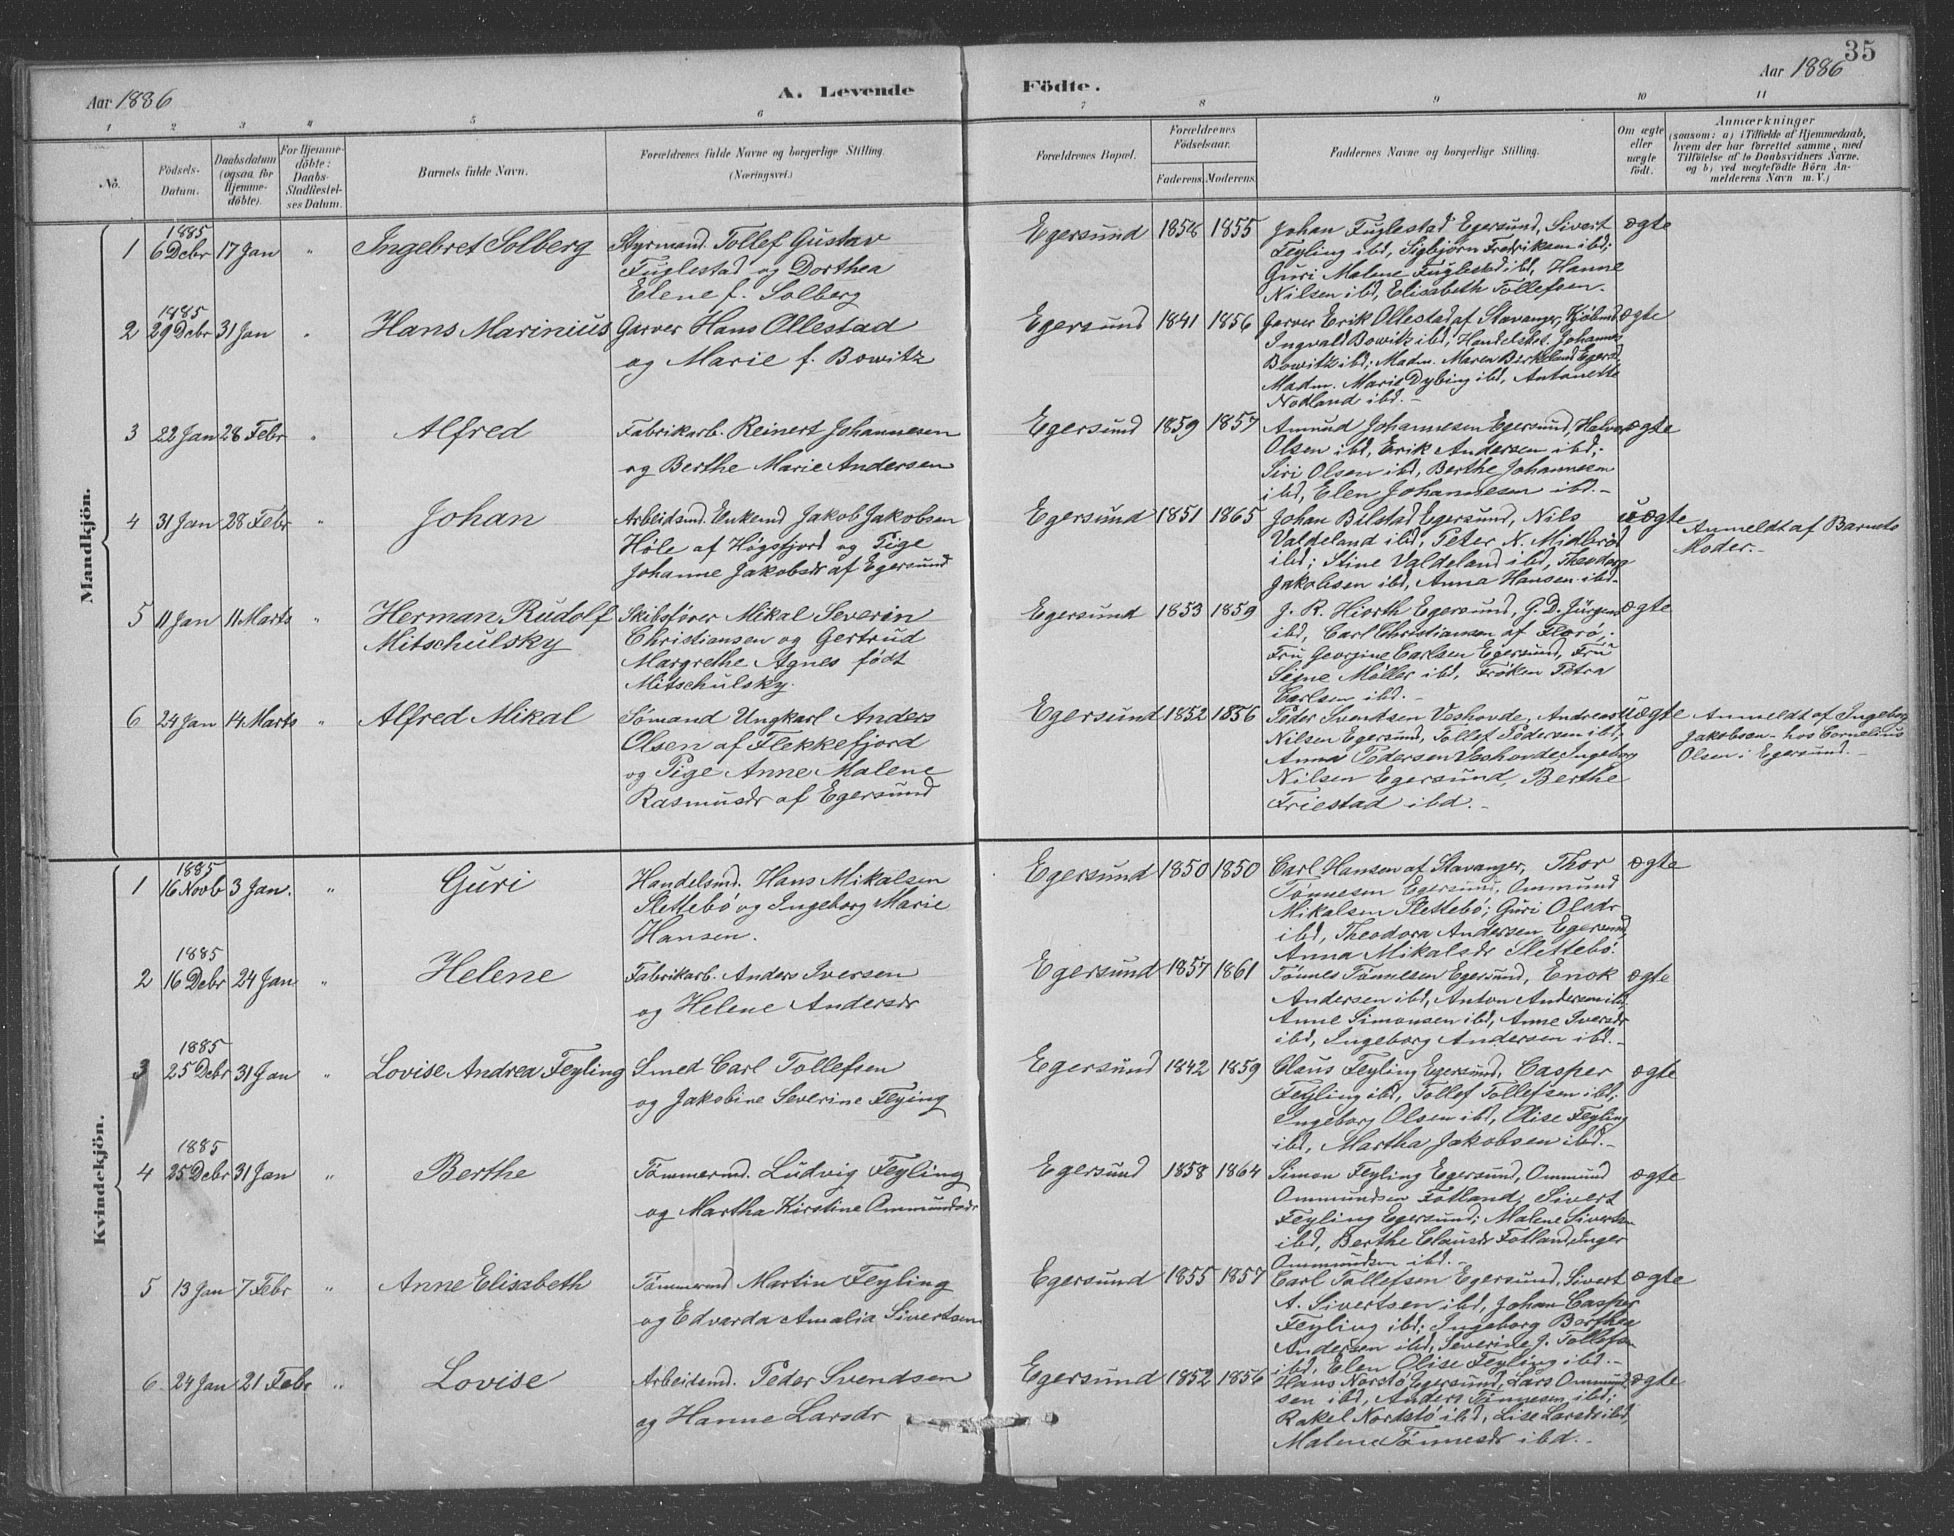 35
Aar 1886
A. Levende
Födte.
Aar 1886
1 2 3 4 5 6 7 8 9 10 11
No.
Födsels-Datum.
Daabsdatum (ogsaa for Hjemme-döbte).
For Hjemme-döbte: Daabs-Stadfæstel-ses Datum.
Barnets fulde Navn.
Forældrenes fulde Navne og borgerlige Stilling.
(Næringsvei.)
Forældrenes Bopæl.
Forældrenes Födselsaar.
Faderens. Moderens.
Faddernes Navne og borgerlige Stilling.
Om ægte eller uægte födt.
Anmærkninger
(saasom: a) i Tilfælde af Hjemmedaab,
hvem der har forrettet samme, med
Tilföielse af to Daabsvidners Navne,
og b) ved uægtefödte Börn An-
melderens Navn m. V.)
Mandkjön.
1 1885 6 Debr 17 Jan " Ingebret Solberg
Styrmand Tollef Gustav
Fuglestad og Dorthea
Elene f. Solberg
Egersund 1856 1855
Johan Fuglestad Egersund, Sivert
Feyling ibd, Sigbjørn Fredriksen ibd;
Guri Malene Fuglestad ibd, Hanne
Nilsen ibd, Elisabeth Tollefsen.
ægte
2 1885 29 Debr 31 Jan " Hans Marinius
Garver Hans Ollestad
og Marie f. Bowitz
Egersund 1841 1856
Garver Erik Ollestad af Stavanger, Kjøbmd
Ingvald Bowitz ibd, Handelsbet. Johannes
Bowitz ibd; Madm. Maren Birkeland Egers.
Madm. Marie Dybing ibd, Antonette
Nodland ibd.-
ægte
3 22 Jan 28 Febr " Alfred
Fabrikarb. Reinert Johannesen
og Berthe Marie Andersen
Egersund 1859 1857
Amund Johannesen Egersund, Halvor
Olsen ibd, Erik Andersen ibd;
Siri Olsen ibd, Berthe Johannesen
ibd, Elen Johannesen ibd.-
ægte
4 31 Jan 28 Febr " Johan
Arbeidsmd. Enkemd Jakob Jakobsen
Høle af Høgsfjord og Pige
Johanne Jakobsdr af Egersund
Egersund 1851 1865
Johan Bilstad Egersund, Nils
Valdeland ibd, Peter N. Midbrød
ibd; Stine Valdeland ibd, Theodora
Jakobsen ibd, Anna Hansen ibd.
uægte
Anmeldt af Barnets
Moder.-
5 11 Jan 11 Marts " Herman Rudolf
Mitschulsky
Skibsfører Mikal Severin
Christiansen og Gertrud
Margrethe Agnes født
Mitschulsky.
Egersund 1853 1859
J. R. Hiorth Egersund, G. D. Jürgens
ibd, Carl Christiansen af Florø;
Fru Georgine Carlsen Egersund, Fru
Signe Møller ibd, Frøken Petra
Carlsen ibd.-
ægte
6 24 Jan 14 Marts " Alfred Mikal
Sømand Ungkarl Anders
Olsen af Flekkefjord
og Pige Anne Malene
Rasmusdr af Egersund
Egersund 1852 1856
Peder Svendsen Veshovde, Andreas
Nilsen Egersund, Tollef Pedersen ibd,
Anna Pedersen Veshovde, Ingeborg
Nilsen Egersund, Berthe
Friestad ibd.-
uægte
Anmeldt af Ingeborg
Jakobsen hos Cornelius
Olsen i Egersund.-
Kvindekjön.
1 1885 16 Novb 3 Jan. " Guri
Handelsmd. Hans Mikalsen
Slettebø og Ingeborg Marie
Hansen.
Egersund 1850 1850
Carl Hansen af Stavanger, Thor
Tønnesen Egersund, Ommund
Mikalsen Slettebø; Guri Olsdr
ibd, Theodora Andersen Egersund,
Anna Mikalsdr Slettebø.
ægte
2 1885 16 Debr 24 Jan " Helene
Fabrikarb. Anders Iversen
og Helene Andersdr
Egersund 1857 1861
Tønnes Tønnesen Egersund, Enok
Andersen ibd, Anton Andersen ibd,
Anne Simonsen ibd, Anne Iversdr
ibd, Ingeborg Andersen ibd.-
ægte
3 1885 25 Debr 31 Jan " Lovise Andrea Feyling
Smed Carl Tollefsen
og Jakobine Severine Feying
Egersund 1842 1859
Claus Feyling Egersund, Casper
Feyling ibd, Tollef Tollefsen ibd;
Ingeborg Olsen ibd, Olise Feyling
ibd, Martha Jakobsen ibd.-
ægte
4 1885 25 Debr 31 Jan " Berthe
Tømmermd. Ludvig Feyling
og Martha Kirstine Ommundsdr
Egersund 1858 1864
Simon Feyling Egersund, Ommund
Ommundsen Fotland, Sivert
Feyling Egersund; Malene Sivertsen
ibd, Berthe Clausdr Fotland, Inger
Ommundsen ibd.-
ægte
5 13 Jan 7 Febr " Anne Elisabeth
Tømmermd Martin Feyling
og Edvarda Amalia Sivertsen
Egersund 1855 1857
Carl Tollefsen Egersund, Sivert
A. Sivertsen ibd, Johan Casper
Feyling ibd; Ingeborg Berthea
Andersen ibd, Severine J. Tollefsen
ibd, Elen Olise Feyling ibd.-
ægte
6 24 Jan 21 Febr " Lovise
Arbeidsmd. Peder Svendsen
og Hanne Larsdr
Egersund 1852 1856
Hans Norstø Egersund, Lars Ommund
sen ibd, Anders Tønnesen ibd;
Rakel Nordstø ibd, Lise Larsdr ibd,
Malene Tønnesdr ibd.-
ægte